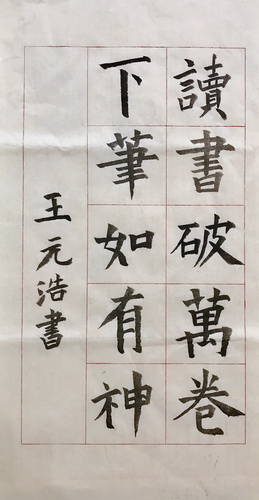 讀書破萬卷
下筆如有神
王元浩書